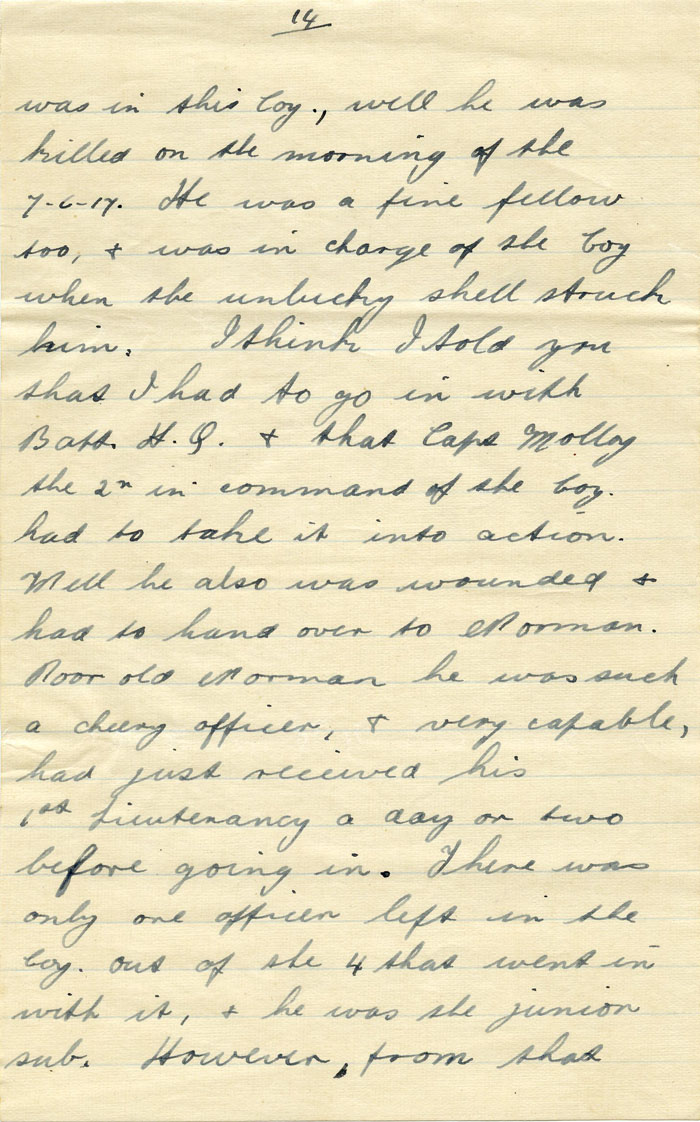 14
was in this Coy., well he was
killed on the morning of the
7-6-17. He was a fine fellow
too, & was in charge of the Coy
when the unlucky shell struck
him. I think I told you
that I had to go in with
Batt. H.Q. & that Capt Molloy
the 2n in command of the Coy.
had to take it into action.
Well he also was wounded &
had to hand over to Norman.
Poor old Norman he was such
a cheery officer, & very capable,
had just received his
1st Lieutenancy a day or two
before going in. There was
only one officer left in the
Coy. out of the 4 that went in
with it, & he was the junior
sub. However, from that